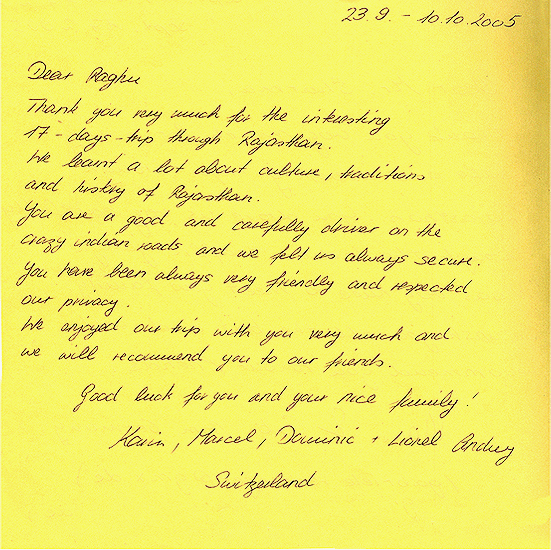 23.9. - 10.10.2005
Dear Raghu
Thank you very much for the interesting
17-days-trip through Rajasthan.
We learnt a lot about culture, traditions
and history of Rajasthan.
You are a good and carefully driver on the
crazy indian roads and we felt us always secure.
You have been always very friendly and respected
our privacy.
We enjoyed our trip with you very much and
we will recommend you to our friends.
Good luck for you and your nice family!
Karin, Marcel, Dominic + Lionel Andrey
Switzerland